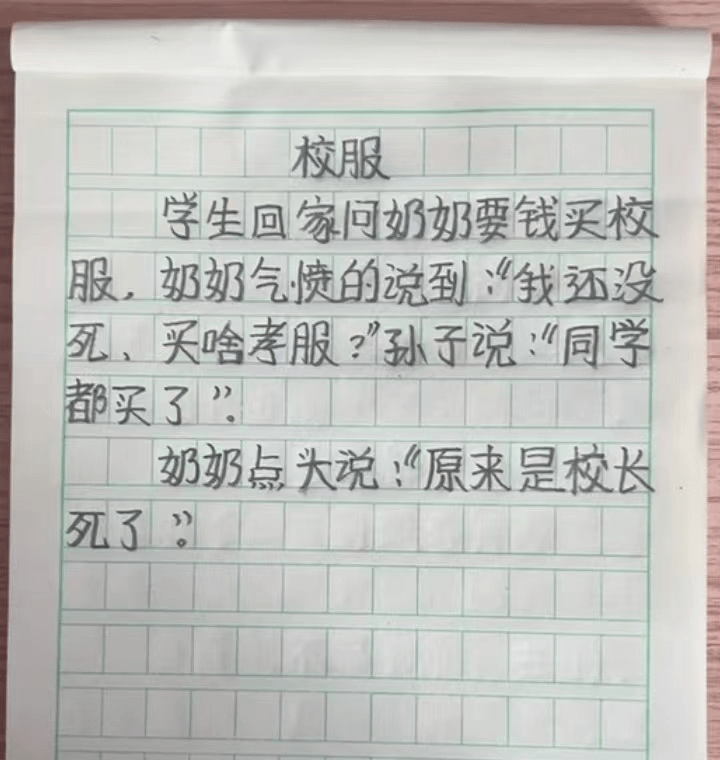 校服
学生回家问奶奶要钱买校
服，奶奶气愤的说到：“我还没
死、买啥孝服？”孙子说：“同学
都买了”。
奶奶点头说：“原来是校长
死了”。